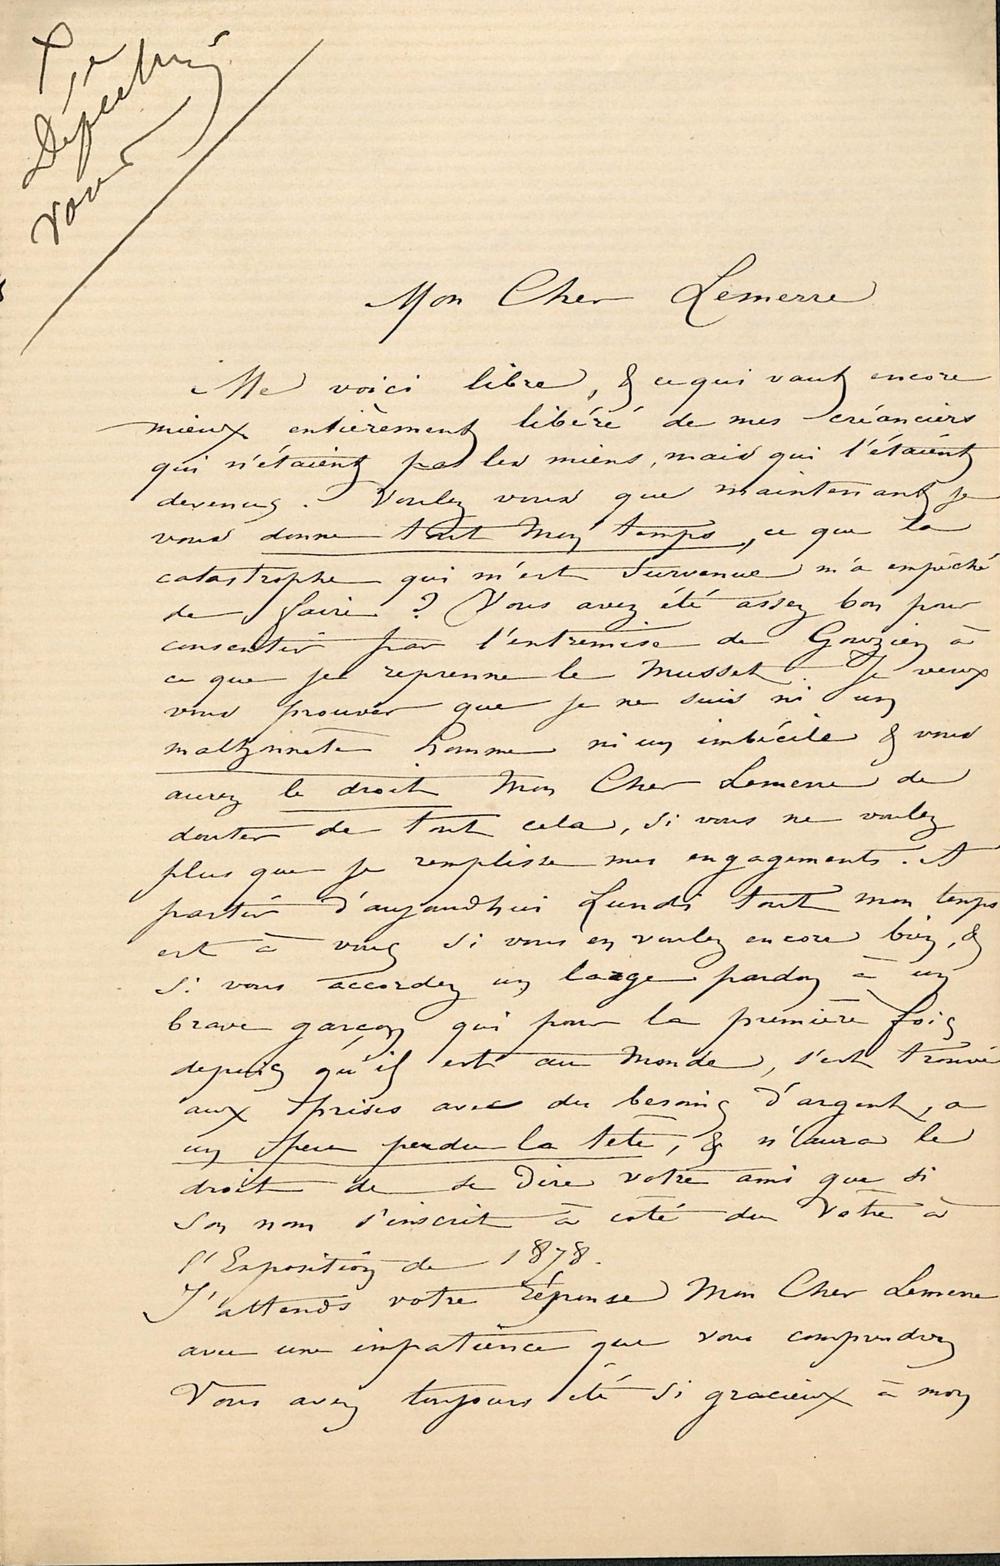 Dépêchez
vous
Mon Cher Lemerre
Me voici libre, & ce qui vaut encore
mieux entièrement libéré de mes créanciers
qui n'étaient pas les miens, mais qui l'étaient
devenus. Voulez vous que maintenant je
vous donne tout mon temps, ce que la
catastrophe qui m'est survenue m'a empêché
de faire ? Vous avez été assez bon pour
consentir par l'entremise de Gouzien à
ce que je reprenne le Musset. Je veux
vous prouver que je ne suis ni un
malhonnête homme ni un imbécile & vous
aurez le droit Mon Cher Lemerre de
douter de tout cela, si vous ne voulez
plus que je remplisse mes engagements. A
partir d'aujourdhui Lundi tout mon temps
est à vous si vous en voulez encore bien, &
si vous accordez un large pardon à un
brave garçon qui pour la première fois
depuis qu'il est au monde, s'est trouvé
aux prises avec des besoins d'argent, a
un peu perdu la tête, & n'aura le
droit de se dire votre ami que si
son nom s'inscrit à coté du Votre à
l'Exposition de 1878.
J'attends votre réponse Mon Cher Lemerre
avec une impatience que vous comprendrez
Vous avez toujours été si gracieux à mon